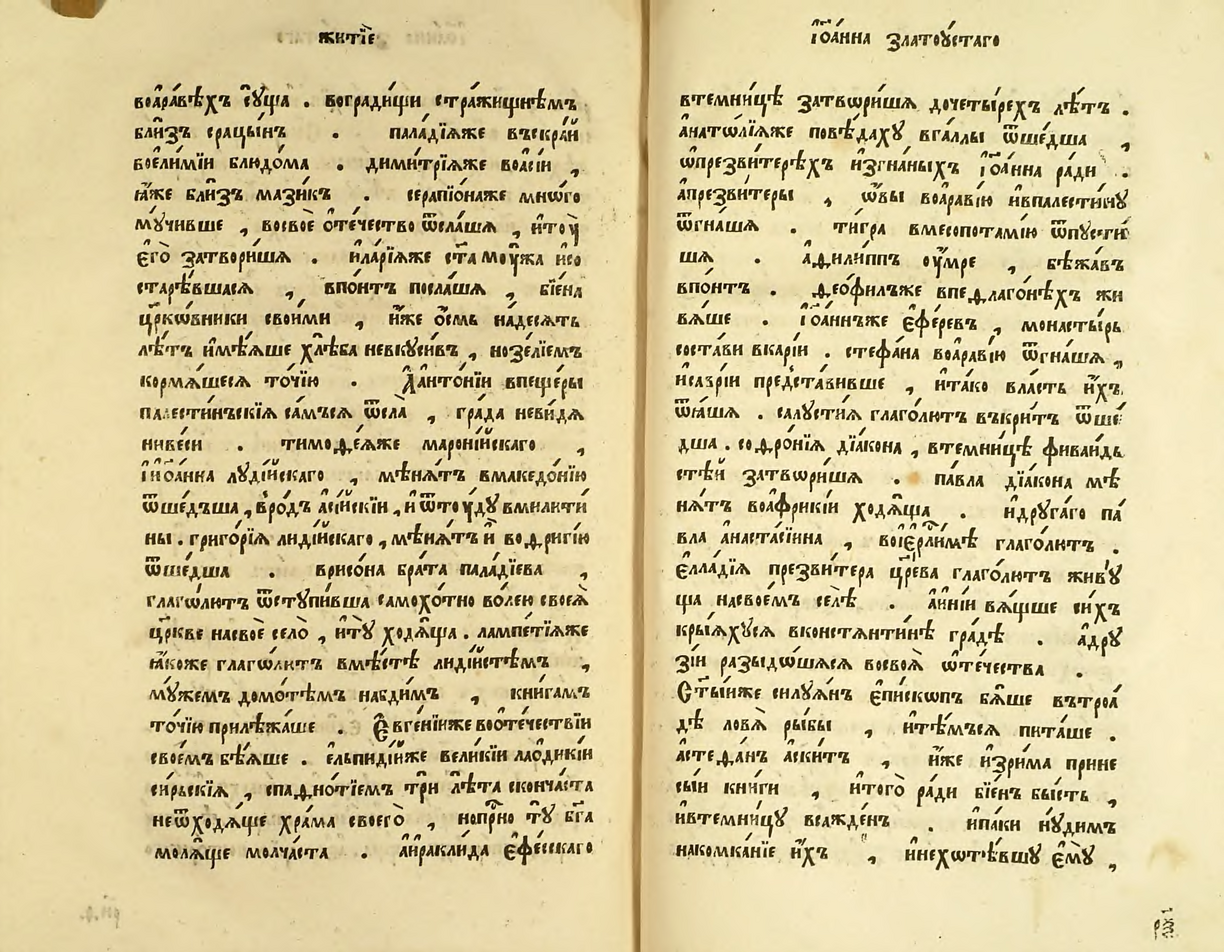 житїе
воара́вѣхъ сꙋ́ща . воградищи стра́жищнѣмъ
бли́зъ срацы́нъ . пала́дїѧже въскра́й
воелимі́и блюдо́ма . дими́трїѧже воасі́и ,
ꙗ́же бли́зъ мази́къ . серапїо́наже мно́ѡго
мꙋ́чивше , восвоѐ о́те́чество ѿсла́шѧ , и́тоу̑
є҆го̀ затвори́шѧ . и҆ла́рїѧже ста мо́ꙋжа исо
старѣ́вшасѧ , впо́нтъ посла́шѧ , бїе́на
цр҃ко́вники свои́ми , и҆́же о҆́смь на́десѧть
лѣ́тъ и҆мѣ́ѧше хлѣ́ба невкꙋси́въ , нозе́лїемъ
кормѧ́шесѧ то́чїю . А҆нто́нїи впеще́ры
палести́нъскїѧ са́мъсѧ ѿсла̀ , гра́да неви́дѧ
нивеси́ . тимоѳе́ѧже мароні́йскаго ,
и҆і҆ѡа́нна лꙋді́йскаго , мѣнѧ́тъ вмакедо́нїю
ѿше́дъша , вро́дъ асі́йскїи , и҆ѿто́ꙋдꙋ вмилити́
ны . григо́рїѧ лиді́йскаго , мѣнѧ́тъ и҆ воѳриги́ю
ѿше́дша . вриссо́на бра́та пала́дїева ,
глаго́лютъ ѿстꙋпи́вша самохо́тно во́лею своеѧ̀
цр҃кве насвоѐ село̀ , и҆тꙋ̀ ходѧ́ща . лампе́тїѧже
ꙗ҆́коже глаго́литъ вмѣ́стѣ лиді́йстѣмъ ,
мꙋ́жемъ домо́тѣмъ наѳди́мъ , кни́гамъ
то́чїю прилѣ́жаше . Є҆вге́нїиже воо́те́чествїи
свое́мъ бѣ́ѧше . є҆льпиді́йже вели́кїи лаоди́кїи
си́рьскїѧ , спаѳно́тїемъ три̑ лѣ́та сконча́ста
неѿходѧ́ще хра́ма своего̀ , нопрⷭ҇но тꙋ̀ бг҃а
молѧ́ще молча́ста . а҆ира́клида є҆фе́сскаго
і҆ѡа́нна златоꙋ́стаго
втемни́цѣ затвори́шѧ дочеты́рехъ лѣ́тъ .
а҆нато́лїѧже повѣ́дахꙋ вга́ллы ѿше́дша ,
ѡпрезви́терѣхъ изгна́ныхъ і҆ѡа́нна ра́ди .
а҆презви́теры , ѡ҆́вы воара́вїю ивпалести́нꙋ
ѿгна́шѧ . ти́гра вмесопота́мїю ѿпꙋсти́
шѧ . а҆ѳили́ппъ оу҆́мре , бѣжа́въ
впо́нтъ . ѳео́филъже впеѳлаго́нѣхъ жи
вѧ́ше . і҆ѡа́ннъже є҆ѳе́ревъ , монасты́рь
соста́ви вка́рїи . стефа́на воара́вїю ѿгна́шѧ ,
и҆са́врїи предста́вивше , и҆та́ко вла́сть и҆́хъ
ѿꙗ́шѧ . салꙋ́стїѧ глаго́лютъ въкри́тъ ѿше́
дша . соѳро́нїѧ дїа́кона , втемни́цѣ фиваи́дь
стѣ́й затвори́шѧ . па́вла дїа́кона мѣ
нѧ́тъ воафрикі́и ходѧ́ща . идрꙋга́го па́
вла анаста́сїина , воіерⷭ҇ли́мѣ глаго́лютъ .
є҆лла́дїѧ презви́тера цр҃е́ва глаго́лютъ живꙋ́
ща насвое́мъ селѣ̀ . а҆и҆ні́и вѧ́щше си́хъ
крыѧ́хꙋсѧ вконстѧнти́нѣ гра́дѣ . а҆дрꙋ
зі́и разыдо́шѧсѧ восвоѧ̀ ѡ҆те́чества .
Ст҃ы́иже силꙋѧ́нъ є҆пи́скопъ бѧ́ше вътроа́
дѣ ловѧ̀ ры́бы , и҆тѣ́мъсѧ пита́ше .
а҆стеѳа́нъ аски́тъ , и҆́же и҆зри́ма прине
сы́и кни́ги , итого̀ ра́ди бїе́нъ бы́сть ,
ивтемни́цꙋ всажде́нъ . и҆па́ки нꙋ́димъ
накомка́нїе и҆́хъ , и҆нехотѣ́вшꙋ є҆мꙋ̀ ,